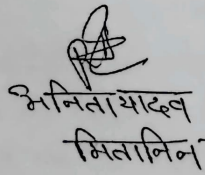 अनिता यादव
मितानिन